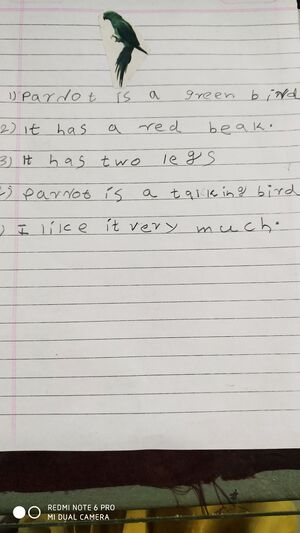 1) Parrot is a green bird
2) It has a red beak.
3) It has two legs
) Parrot is a talking bird
) I like it very much.
REDMI NOTE 6 PRO
MI DUAL CAMERA